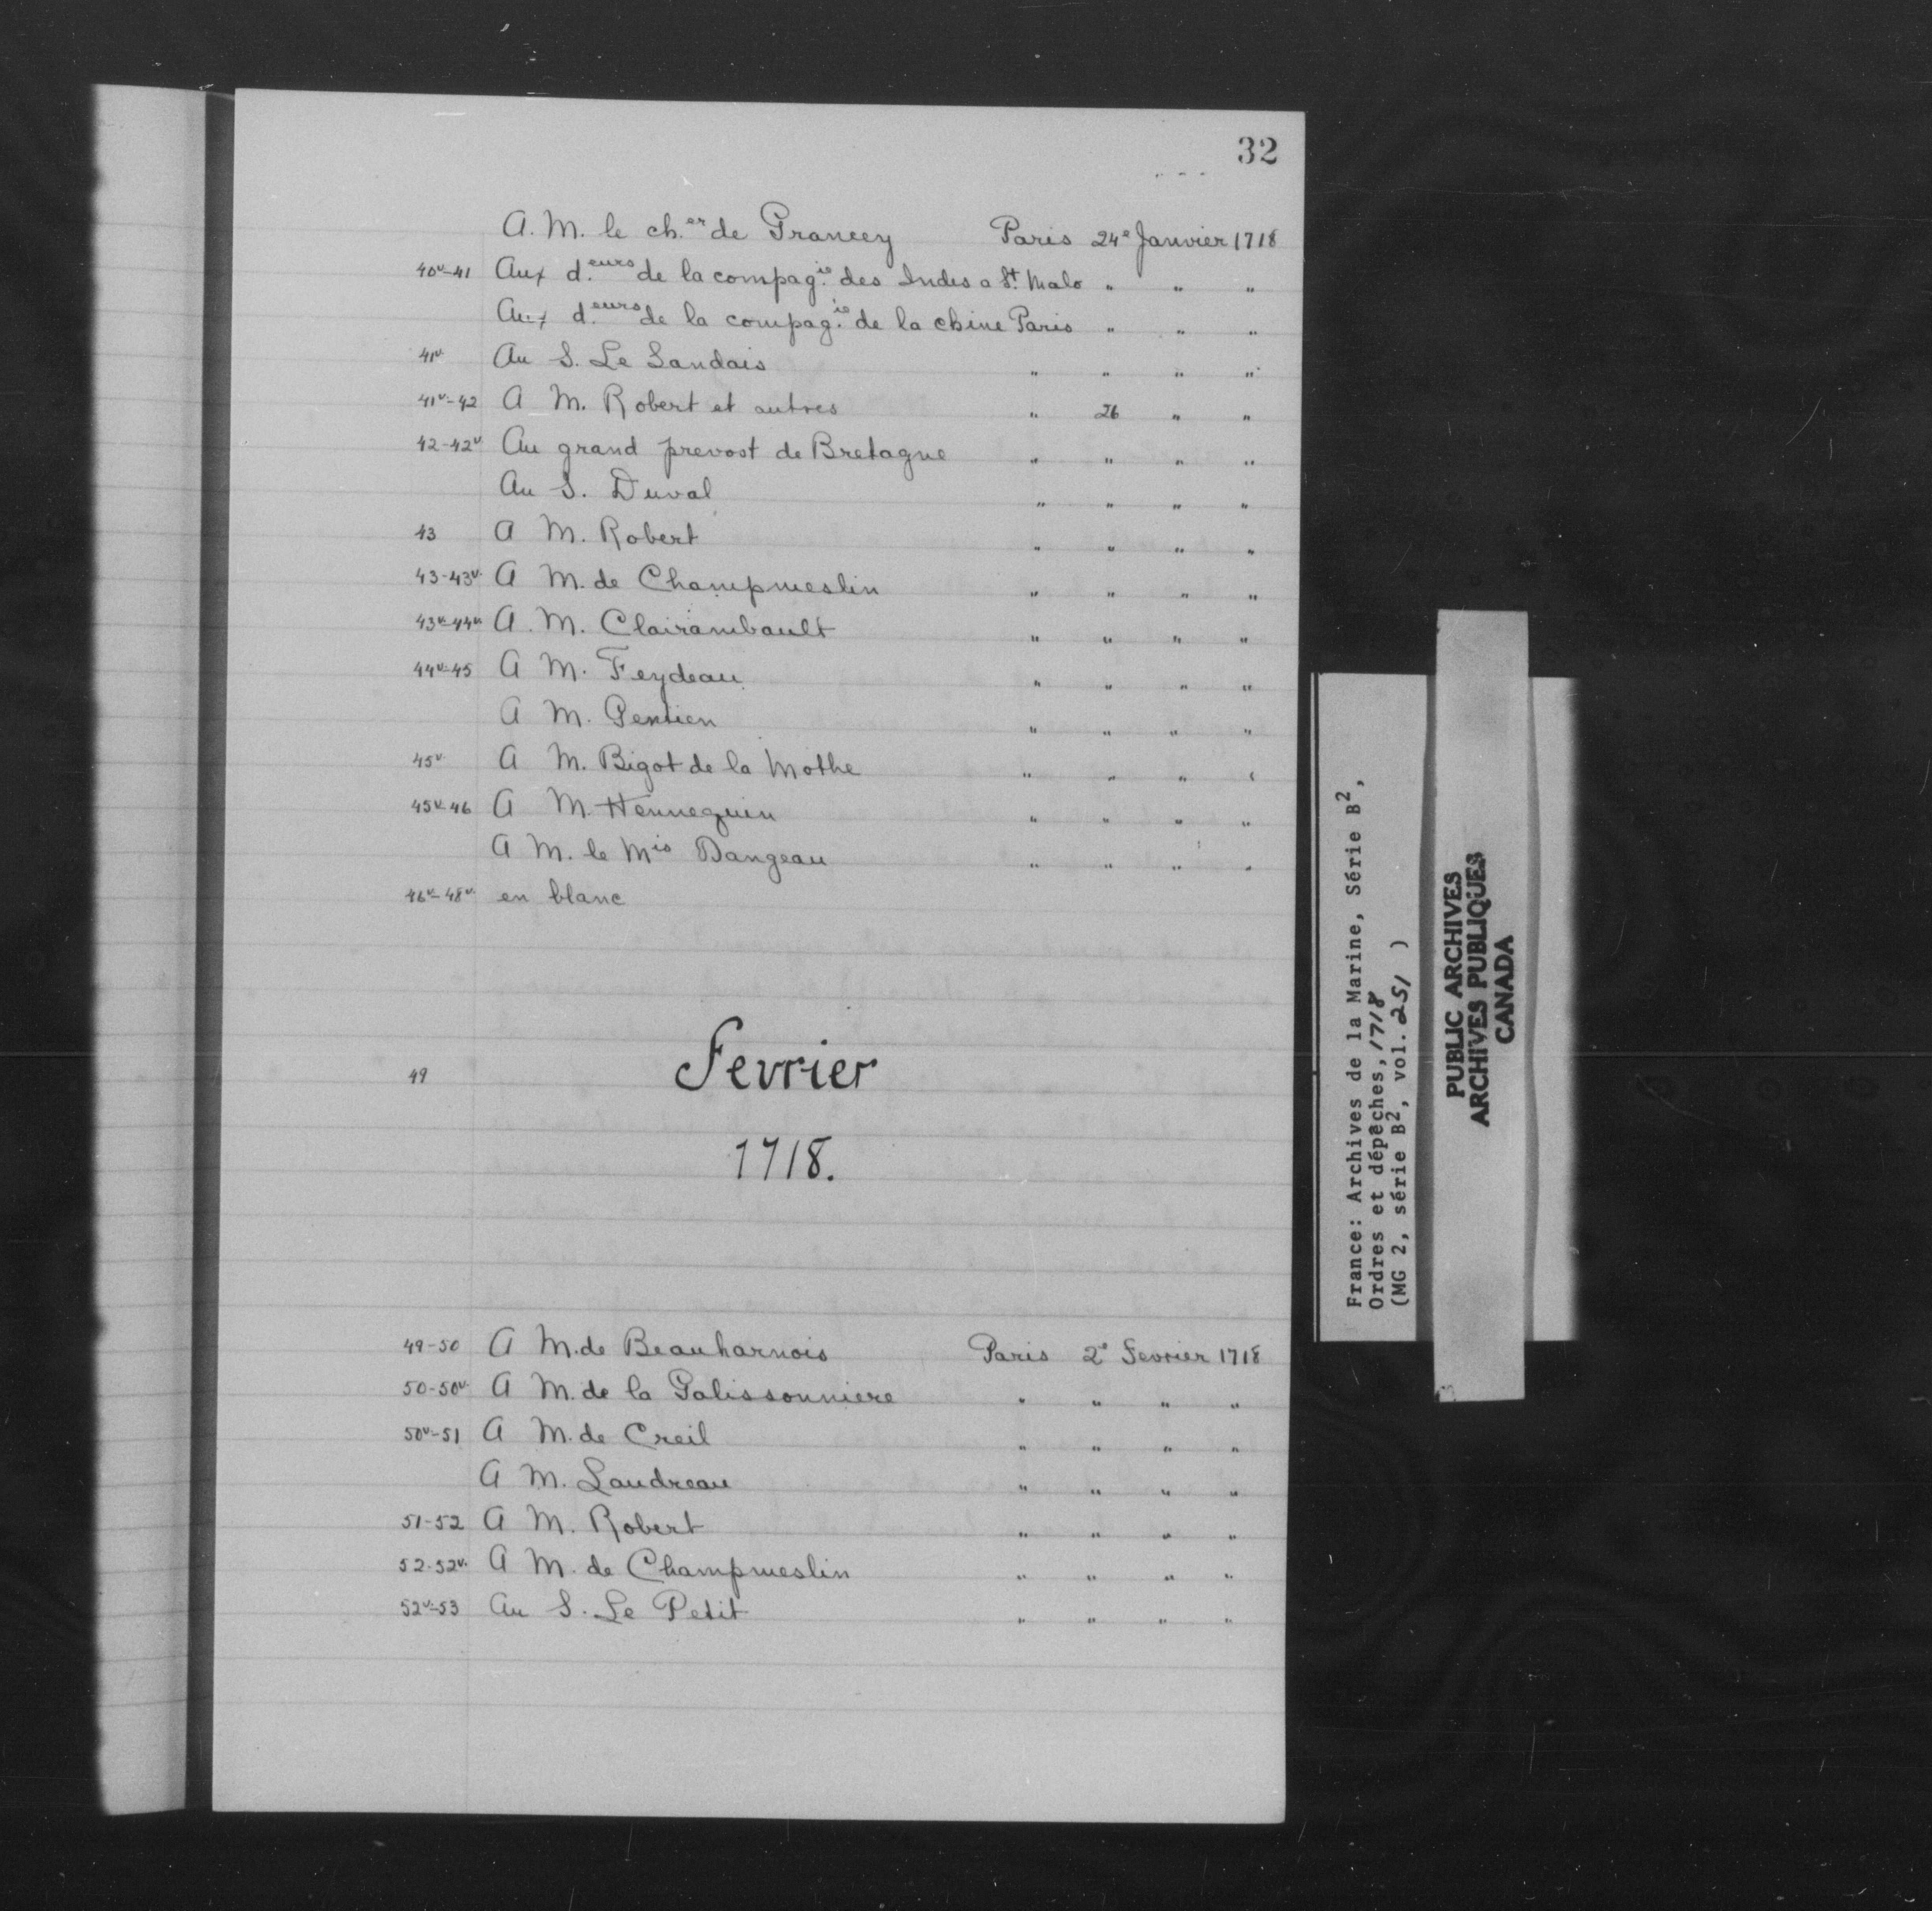 32
A. M. le ch.er de Grancey Paris 24e Janvier 1718
40v-41 Aux d.eurs de la compag.ie des Indes a St. Malo " " "
Aux d.eurs de la compag.ie de la chine Paris " " "
41v Au S. Le Landais " " " "
41v-42 A M. Robert et autres " 26 " "
42-42v Au grand prevost de Bretagne " " " "
Au S. Duval " " " "
43 A M. Robert " " " "
43-43v A M. de Champmeslin " " " "
43v-44v A. M. Clairambault " " " "
44v-45 A M. Feydeau " " " "
A M. " " " "
45v A M. Bigot de la Mothe " " " "
45v-46 A M. Hennequin " " " "
A M. le Mis Dangeau " " " "
46v-48v en blanc
49 Fevrier
1718.
49-50 A M. de Beauharnois Paris 2e Fevrier 1718
50-50v A M. de la Galissonniere " " " "
50v-51 A M. de Creil " " " "
A M. Landreau " " " "
51-52 A M. Robert " " " "
52-52v A M. de Champmeslin " " " "
52v-53 Au S. Le Petit " " " "
France: Archives de la Marine, Série B2,
Ordres et dépêches, 1718
(MG 2, série B2, vol. 251 )
PUBLIC ARCHIVES
ARCHIVES PUBLIQUES
CANADA